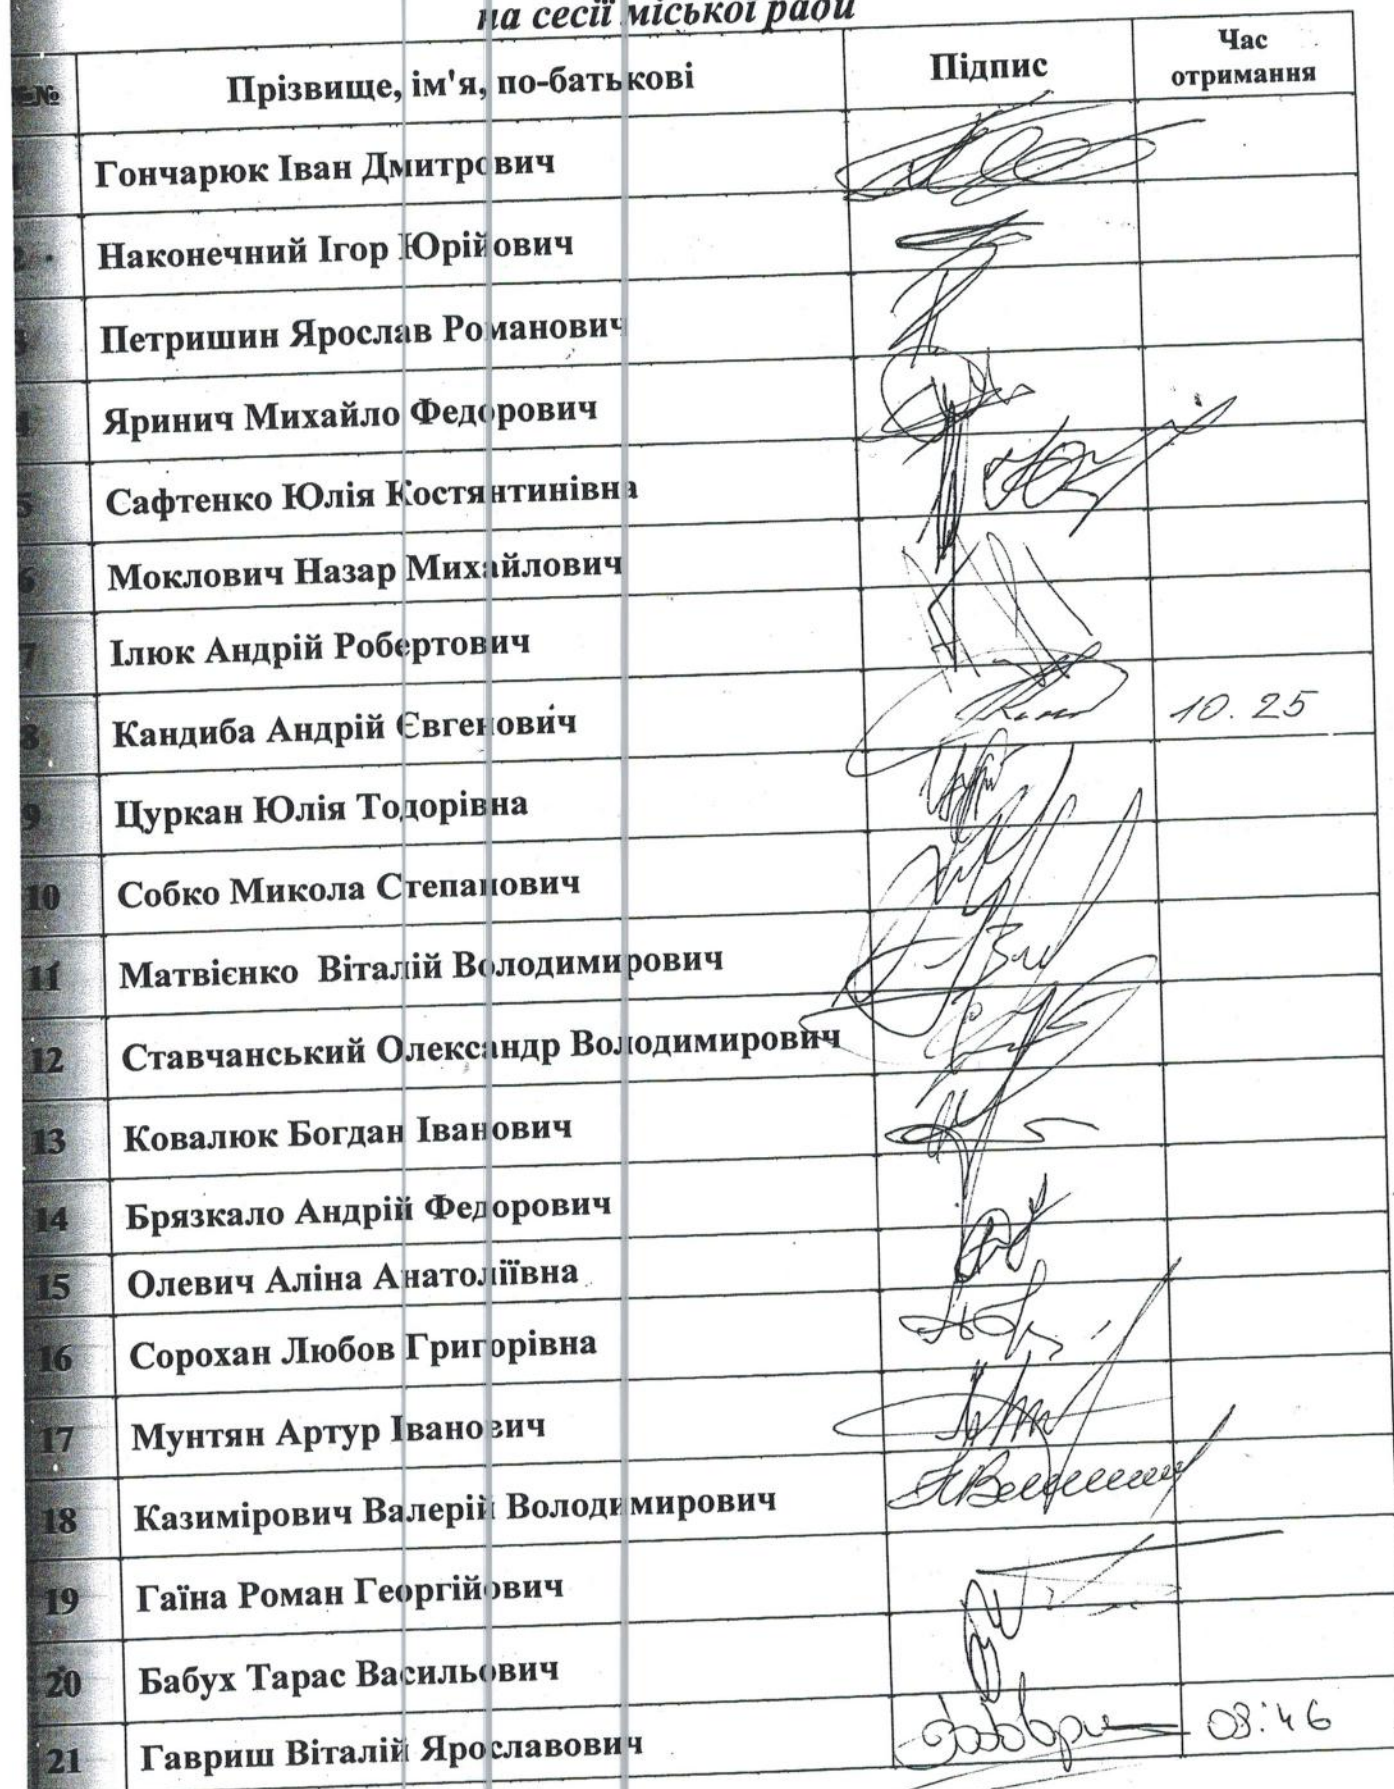 на сесії міської ради
№№ Прізвище, ім'я, по-батькові Підпис Час
отримання
1 Гончарюк Іван Дмитрович
2 Наконечний Ігор Юрійович
3 Петришин Ярослав Романович
4 Яринич Михайло Федорович
5 Сафтенко Юлія Костянтинівна
6 Моклович Назар Михайлович
7 Ілюк Андрій Робертович
8 Кандиба Андрій Євгенович 10.25
9 Цуркан Юлія Тодорівна
10 Собко Микола Степанович
11 Матвієнко Віталій Володимирович
12 Ставчанський Олександр Володимирович
13 Ковалюк Богдан Іванович
14 Брязкало Андрій Федорович
15 Олевич Аліна Анатоліївна
16 Сорохан Любов Григорівна
17 Мунтян Артур Іванович
18 Казимірович Валерій Володимирович
19 Гаїна Роман Георгійович
20 Бабух Тарас Васильович
21 Гавриш Віталій Ярославович